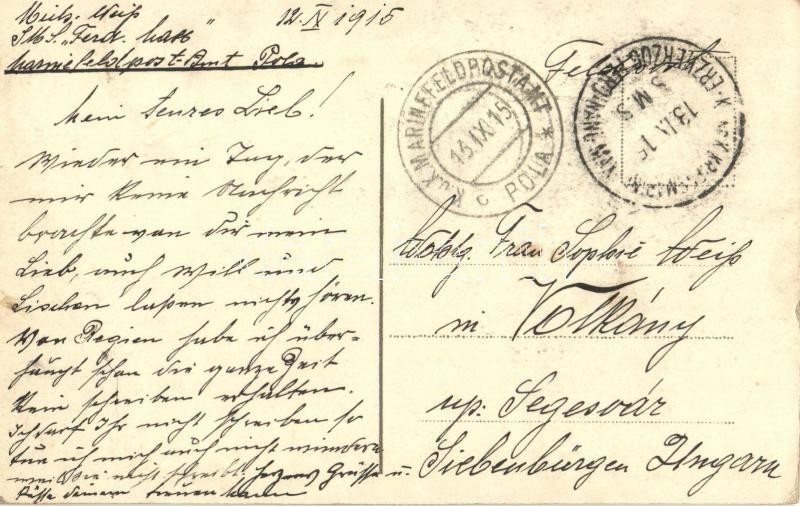 Weiß
12. IX 1915
S.M.S. "Ferd. Max"
Marinefeldpost-Amt Pola.
Mein teures Lieb!
Wieder ein Tag, der
mir keine Nachricht
brachte von dir mein
Lieb, auch Willi und
Lischen laßen nichts hören.
Von Regien habe ich über-
haupt schon die ganze Zeit
kein schreiben erhalten.
Ich darf Ihr nicht schreiben so
tun ich mich auch nicht wundern
weil sie nicht schreibt. Grüße u.
Küsse deinem treuen
K.u.K. MARINEFELDPOSTAMT
13.IX.15
c POLA *
ERZHERZOG FERDINAND
13.IX 15
Wohlg. Frau Sophie Weiß
in Volkány
up: Segesvár
Siebenbürgen Ungarn